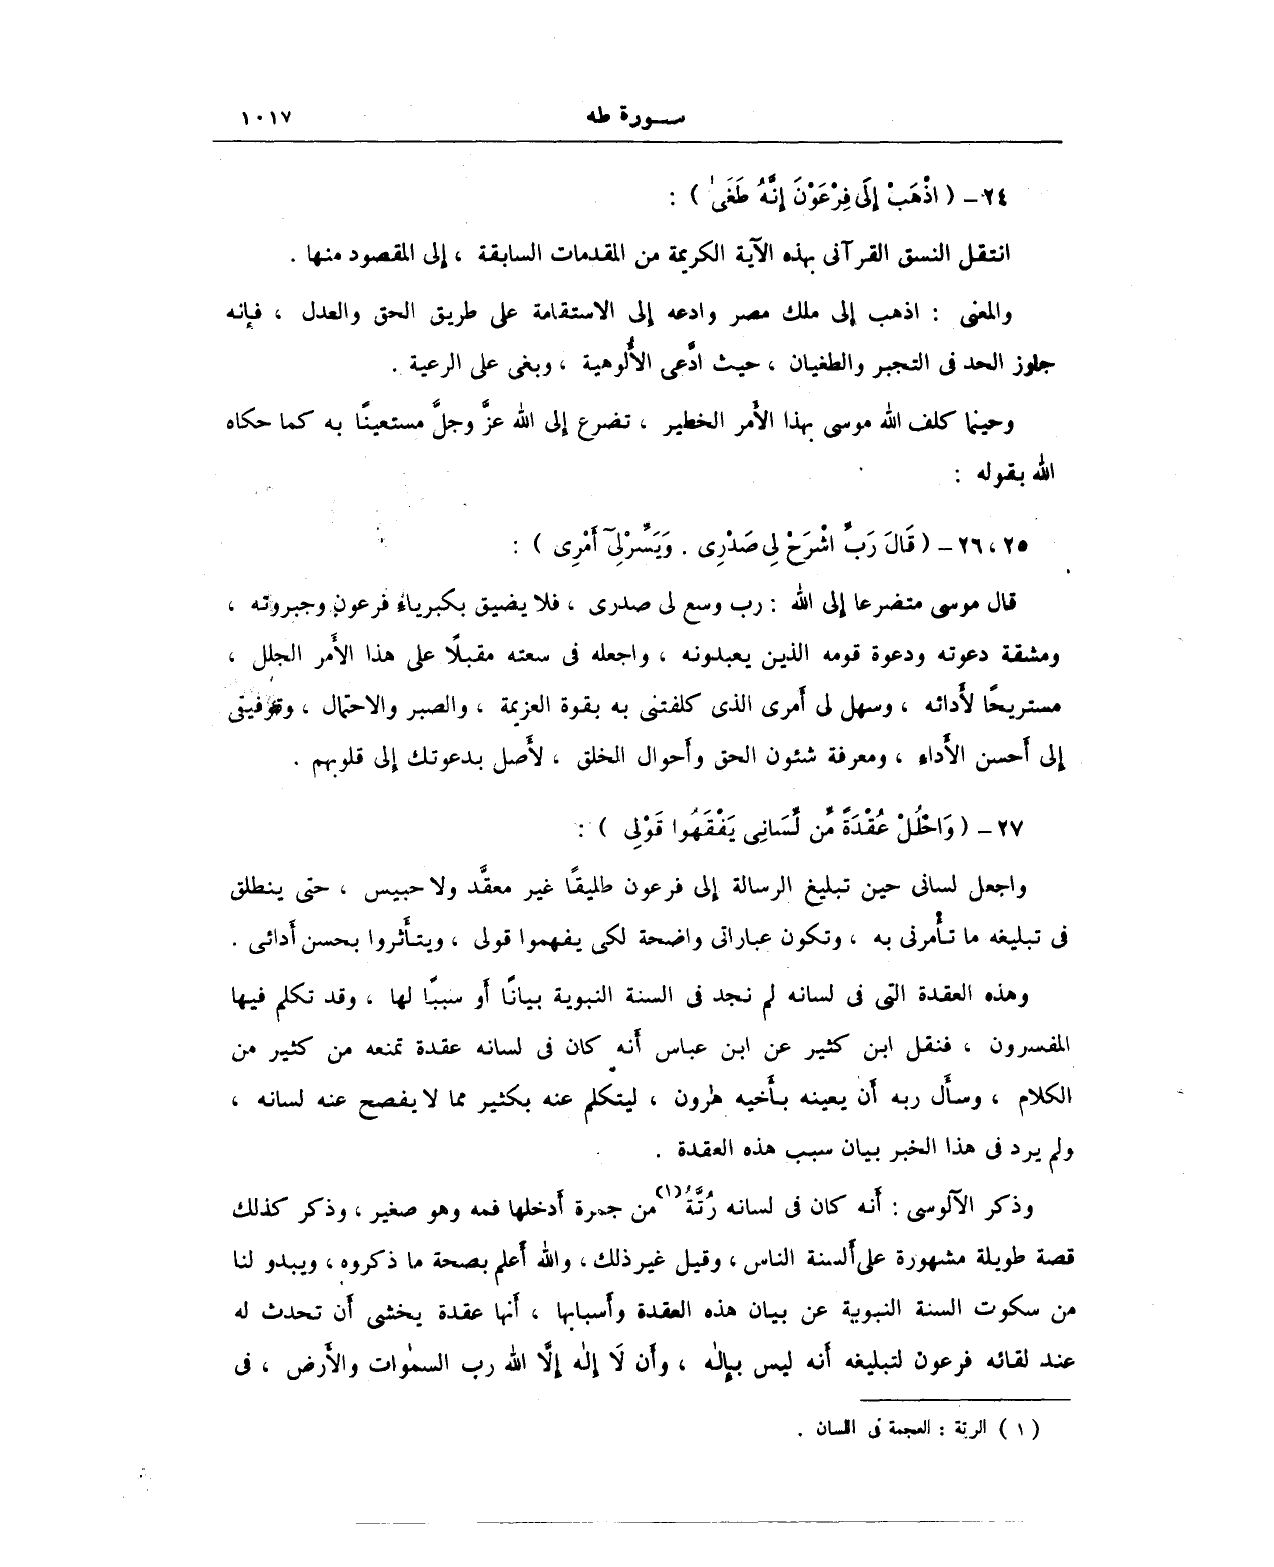 سورة طه ١٠١٧
٢٤ – ( اذْهَبْ إِلَى فِرْعَوْنَ إِنَّهُ طَغَىٰ ) :
انتقل النسق القرآنى بهذه الآية الكريمة من المقدمات السابقة ، إلى المقصود منها .
والمعنى : اذهب إلى ملك مصر وادعه إلى الاستقامة على طريق الحق والعدل ، فإنه
جاوز الحد فى التجبر والطغيان ، حيث ادَّعى الأُلوهية ، وبغى على الرعية .
وحينما كلف الله موسى بهذا الأَمر الخطير ، تضرع إلى الله عزَّ وجلَّ مستعينًا به كما حكاه
الله بقوله :
٢٥ ، ٢٦ – ( قَالَ رَبِّ اشْرَحْ لِى صَدْرِى . وَيَسِّرْ لِىٓ أَمْرِى ) :
قال موسى متضرعا إلى الله : رب وسع لى صدرى ، فلا يضيق بكبرياءِ فرعون وجبروته ،
ومشقة دعوته ودعوة قومه الذين يعبدونه ، واجعله فى سعته مقبلًا على هذا الأَمر الجلل ،
مستريحًا لأَدائه ، وسهل لى أَمرى الذى كلفتنى به بقوة العزيمة ، والصبر والاحتمال ، وتوفيقى
إلى أَحسن الأَداءِ ، ومعرفة شئون الحق وأَحوال الخلق ، لأَصل بدعوتك إلى قلوبهم .
٢٧ – ( وَاحْلُلْ عُقْدَةً مِّن لِّسَانِى يَفْقَهُوا قَوْلِى ) :
واجعل لسانى حين تبليغ الرسالة إلى فرعون طليقًا غير معقَّد ولا حبيس ، حتى ينطلق
فى تبليغه ما تأْمرنى به ، وتكون عباراتى واضحة لكى يفهموا قولى ، ويتأَثروا بحسن أَدائى .
وهذه العقدة التى فى لسانه لم نجد فى السنة النبوية بيانًا أَو سببًا لها ، وقد تكلم فيها
المفسرون ، فنقل ابن كثير عن ابن عباس أَنه كان فى لسانه عقدة تمنعه من كثير من
الكلام ، وسأَل ربه أَن يعينه بأَخيه هٰرون ، ليتكلم عنه بكثير مما لا يفصح عنه لسانه ،
ولم يرد فى هذا الخبر بيان سبب هذه العقدة .
وذكر الآلوسى : أَنه كان فى لسانه رُتَّةٌ (١) من جمرة أَدخلها فمه وهو صغير ، وذكر كذلك
قصة طويلة مشهورة على أَلسنة الناس ، وقيل غير ذلك ، والله أَعلم بصحة ما ذكروه ، ويبدو لنا
من سكوت السنة النبوية عن بيان هذه العقدة وأَسبابها ، أَنها عقدة يخشى أَن تحدث له
عند لقائه فرعون لتبليغه أَنه ليس بإِلٰه ، وأَن لَا إِلٰه إِلَّا الله رب السمٰوات والأَرض ، فى
( ١ ) الرتة : العجمة فى اللسان .